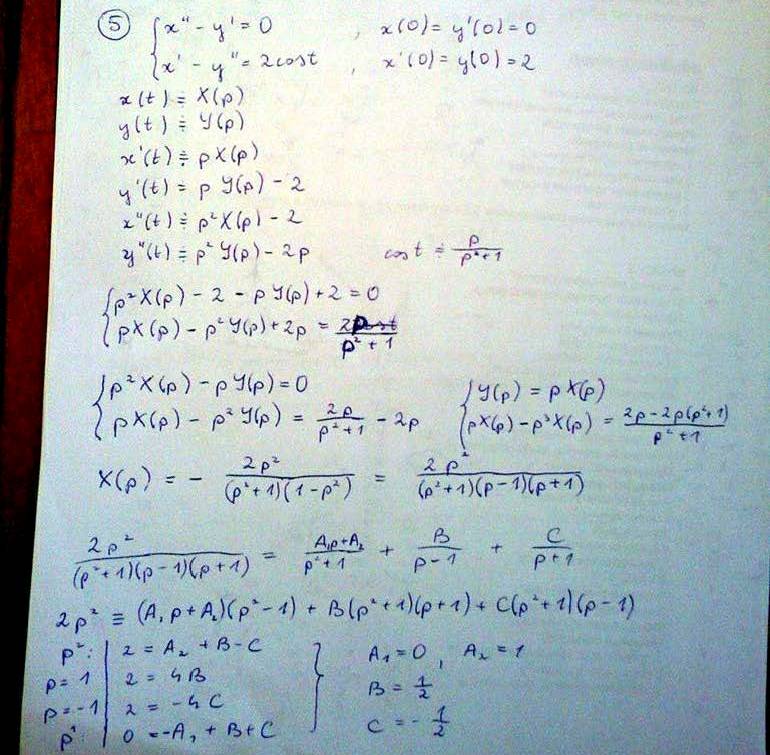 ⑤ { x'' - y' = 0 , x(0) = y'(0) = 0
{ x' - y'' = 2cost , x'(0) = y(0) = 2
x(t) ≑ X(p)
y(t) ≑ Y(p)
x'(t) ≑ pX(p)
y'(t) ≑ pY(p) - 2
x''(t) ≑ p²X(p) - 2
y''(t) ≑ p²Y(p) - 2p cos t ≑ p/(p²+1)
{ p²X(p) - 2 - pY(p) + 2 = 0
{ pX(p) - p²Y(p) + 2p = 2p/(p²+1)
{ p²X(p) - pY(p) = 0 { Y(p) = pX(p)
{ pX(p) - p²Y(p) = 2p/(p²+1) - 2p { pX(p) - p³X(p) = (2p - 2p(p²+1))/(p²+1)
X(p) = - 2p²/((p²+1)(1-p²)) = 2p²/((p²+1)(p-1)(p+1))
2p²/((p²+1)(p-1)(p+1)) = (A₁p+A₂)/(p²+1) + B/(p-1) + C/(p+1)
2p² ≡ (A₁p + A₂)(p²-1) + B(p²+1)(p+1) + C(p²+1)(p-1)
p²: | 2 = A₂ + B - C } A₁ = 0 , A₂ = 1
p = 1 | 2 = 4B
p = -1 | 2 = -4C B = 1/2
p¹ | 0 = -A₁ + B + C C = - 1/2